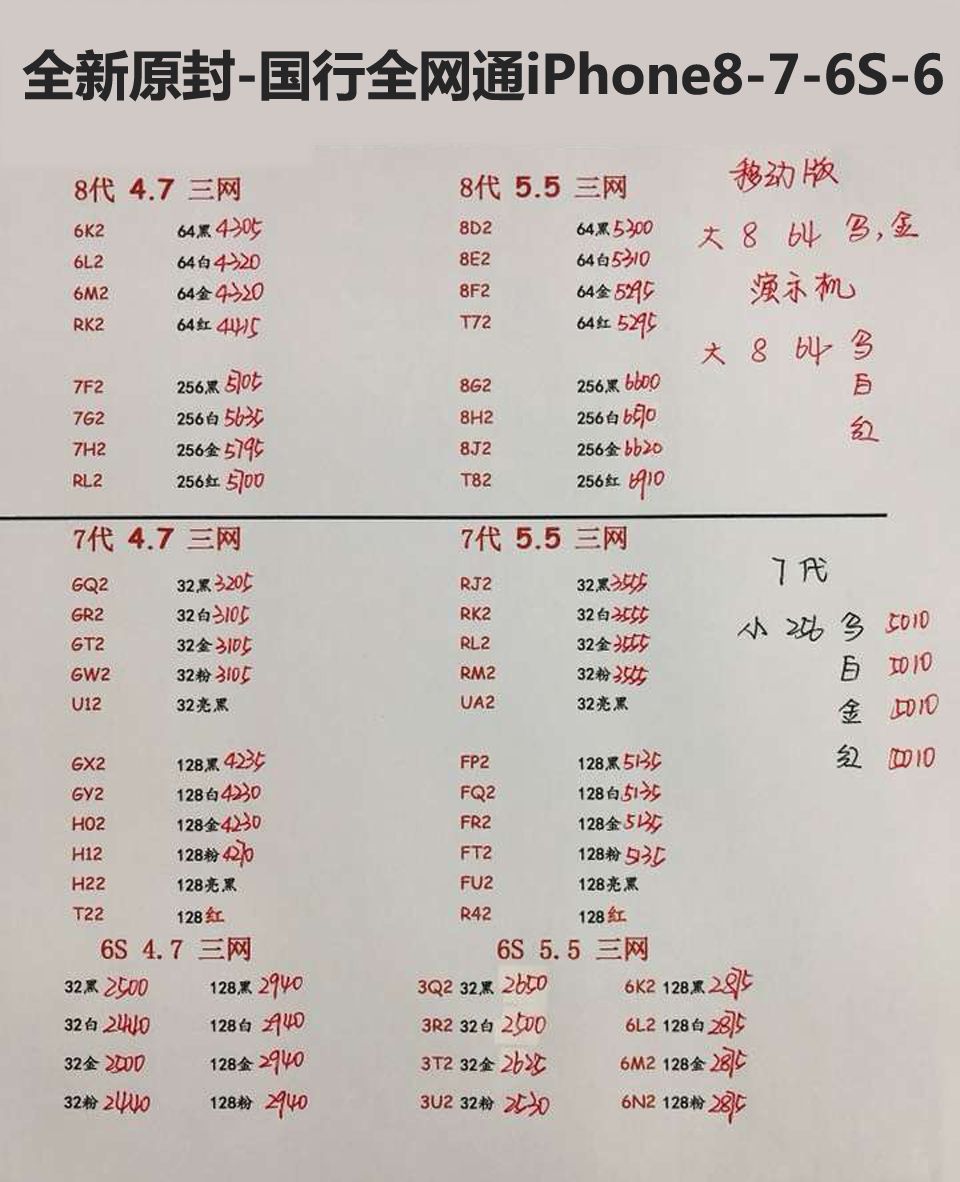 全新原封-国行全网通iPhone8-7-6S-6
移动版
8代 4.7 三网 8代 5.5 三网
6K2 64黑 4305 8D2 64黑 5300 大 8 64 黑,金
6L2 64白 4320 8E2 64白 5310
6M2 64金 4320 8F2 64金 5295 演示机
RK2 64红 4415 T72 64红 5295
大 8 64 黑
7F2 256黑 5705 8G2 256黑 6600 白
7G2 256白 5635 8H2 256白 6510 红
7H2 256金 5795 8J2 256金 6620
RL2 256红 5700 T82 256红 6910
7代 4.7 三网 7代 5.5 三网
7代
GQ2 32黑 3205 RJ2 32黑 3555
GR2 32白 3105 RK2 32白 3555 小 256 黑 5010
GT2 32金 3105 RL2 32金 3555
GW2 32粉 3105 RM2 32粉 3555 白 5010
U12 32亮黑 UA2 32亮黑 金 5010
GX2 128黑 4235 FP2 128黑 5135 红 5010
GY2 128白 4230 FQ2 128白 5135
H02 128金 4230 FR2 128金 5135
H12 128粉 FT2 128粉 5135
H22 128亮黑 FU2 128亮黑
T22 128红 R42 128红
6S 4.7 三网 6S 5.5 三网
32黑 2500 128黑 2940 3Q2 32黑 2650 6K2 128黑 2875
32白 2440 128白 2940 3R2 32白 2500 6L2 128白 2875
32金 2500 128金 2940 3T2 32金 2625 6M2 128金 2875
32粉 2440 128粉 2940 3U2 32粉 2530 6N2 128粉 2875